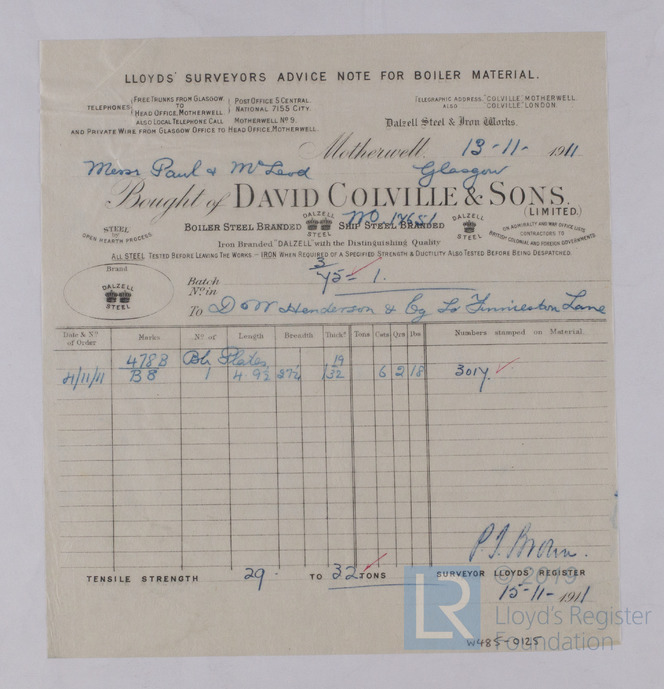 LLOYDS' SURVEYORS ADVICE NOTE FOR BOILER MATERIAL.
TELEPHONES FREE TRUNKS FROM GLASGOW TO HEAD OFFICE, MOTHERWELL POST OFFICE 5 CENTRAL. NATIONAL 7155 CITY.
ALSO LOCAL TELEPHONE CALL MOTHERWELL Nº 9.
AND PRIVATE WIRE FROM GLASGOW OFFICE TO HEAD OFFICE, MOTHERWELL.
TELEGRAPHIC ADDRESS "COLVILLE" MOTHERWELL.
ALSO "COLVILLE" LONDON.
Dalzell Steel & Iron Works.
Motherwell, 13-11- 1911
Messrs Paul & McLeod Glasgow
Bought of DAVID COLVILLE & SONS.
(LIMITED.)
No 12651
STEEL BY OPEN HEARTH PROCESS
BOILER STEEL BRANDED DALZELL STEEL SHIP STEEL BRANDED DALZELL STEEL
ON ADMIRALTY AND WAR OFFICE LISTS CONTRACTORS TO BRITISH COLONIAL AND FOREIGN GOVERNMENTS
Iron Branded "DALZELL" with the Distinguishing Quality
ALL STEEL TESTED BEFORE LEAVING THE WORKS. — IRON WHEN REQUIRED OF A SPECIFIED STRENGTH & DUCTILITY ALSO TESTED BEFORE BEING DESPATCHED.
Brand
DALZELL STEEL
3
Batch Nº in 45 = 1.
To D & W Henderson & Co Ld Finnieston Lane
Date & Nº of Order Marks Nº of Length Breadth Thick? Tons Cwts Qrs lbs Numbers stamped on Material.
478B Blr Plates 19
4/11/11 B8 1 4 9½ 27¼ 32 6 2 18 3014
P. T. Brown.
TENSILE STRENGTH 29 TO 32 TONS SURVEYOR LLOYDS' REGISTER
15-11- 1911
© 2019
LR Lloyd's Register
Foundation
W485-0125